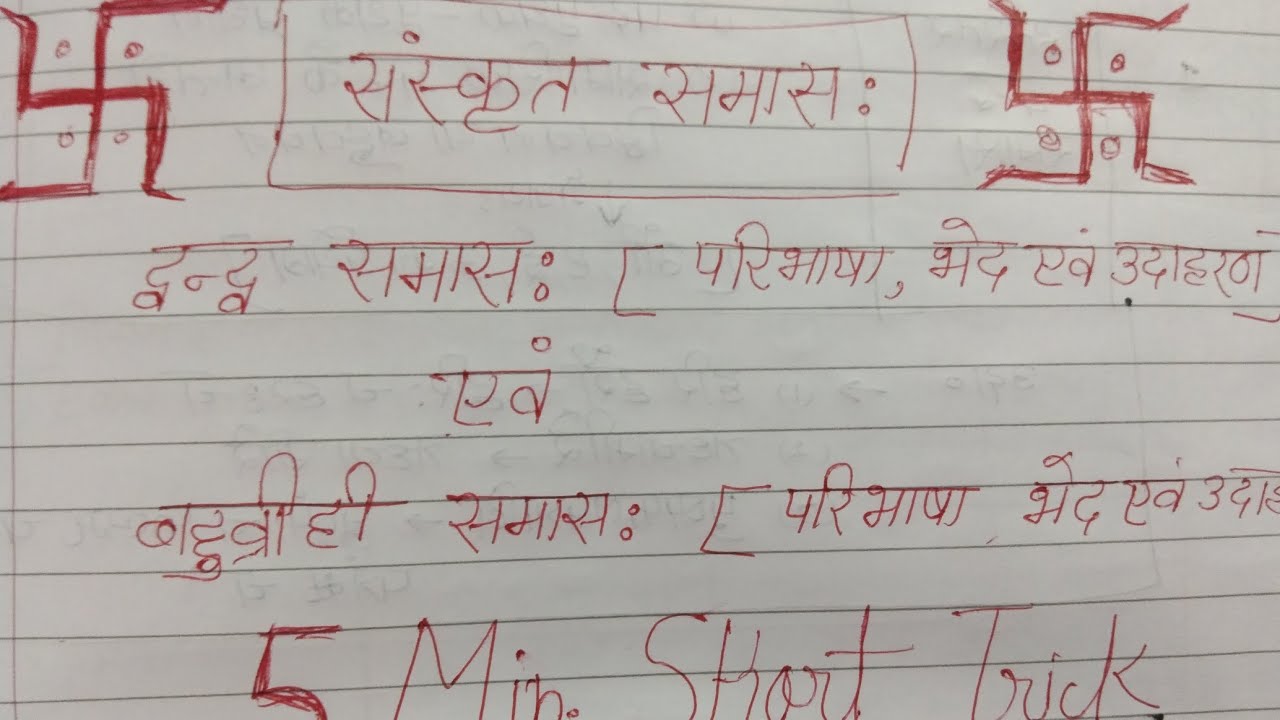 संस्कृत समास:
द्वन्द्व समास: [ परिभाषा, भेद एवं उदाहरण
एवं
बहुव्रीही समास: [ परिभाषा भेद एवं उदाह
5 Min. Short Trick